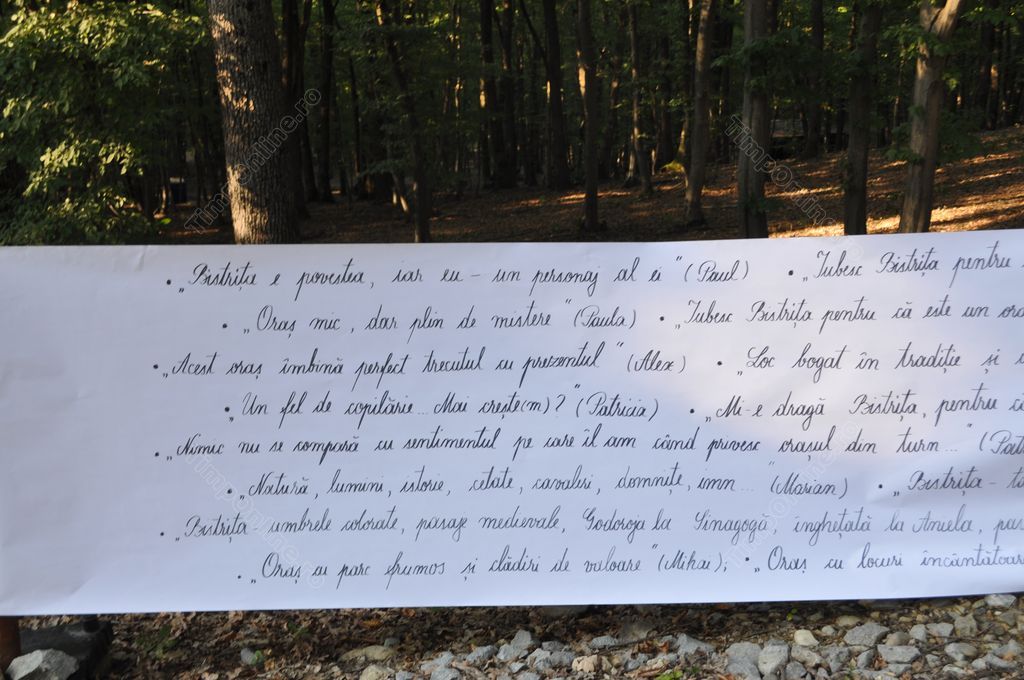 • „Bistrița e povestea, iar eu - un personaj al ei” (Paul) • „Iubesc Bistrița pentru
• „Oraș mic, dar plin de mistere” (Paula) • „Iubesc Bistrița pentru că este un
• „Acest oraș îmbină perfect trecutul cu prezentul” (Alex) • „Loc bogat în tradiție și
• „Un fel de copilărie... Mai crește(m)?” (Patricia) • „Mi-e dragă Bistrița, pentru
• „Nimic nu se compară cu sentimentul pe care îl am când privesc orașul din turn...”
• „Natură, lumini, istorie, cetate, cavaleri, domnițe, imn...” (Marian) • „Bistrița -
• „Bistrița umbrele colorate, pasaje medievale, Godoroja la Sinagogă, înghețată la Aniela,
• „Oraș cu parc frumos și clădiri de valoare” (Mihai); • „Oraș cu locuri
TimpOnline.ro
TimpOnline.ro
TimpOnline.ro